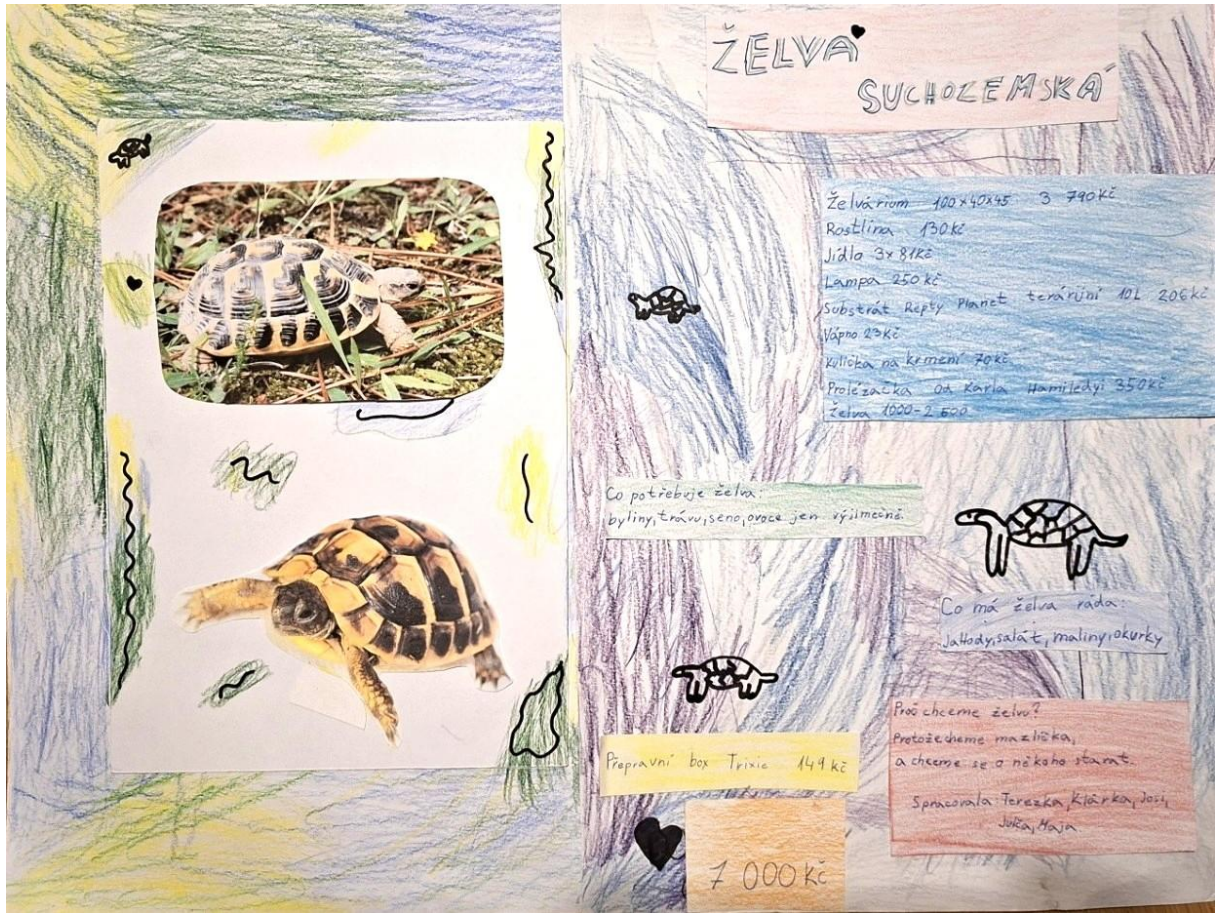 ŽELVA
SUCHOZEMSKÁ
Želvárium 100x40x45 3 790kč
Rostlina 130kč
Jídla 3x 81kč
Lampa 250kč
Substrát Repty Planet terárijní 10L 206kč
Vápno 23kč
kulička na krmení 70kč
Prolézačka od Karla Hamiledyi 350kč
Želva 1000-2 500
Co potřebuje želva:
byliny, trávu, seno, ovoce jen výjímečně.
Co má želva ráda:
Jahody, salát, maliny, okurky
Proč chceme želvu?
Protožecheme mazlíčka,
a chceme se o někoho starat.
Spracovala Terezka, Klárka, Josi,
Julča, Maja
Přepravní box Trixie 149 kč
7 000kč